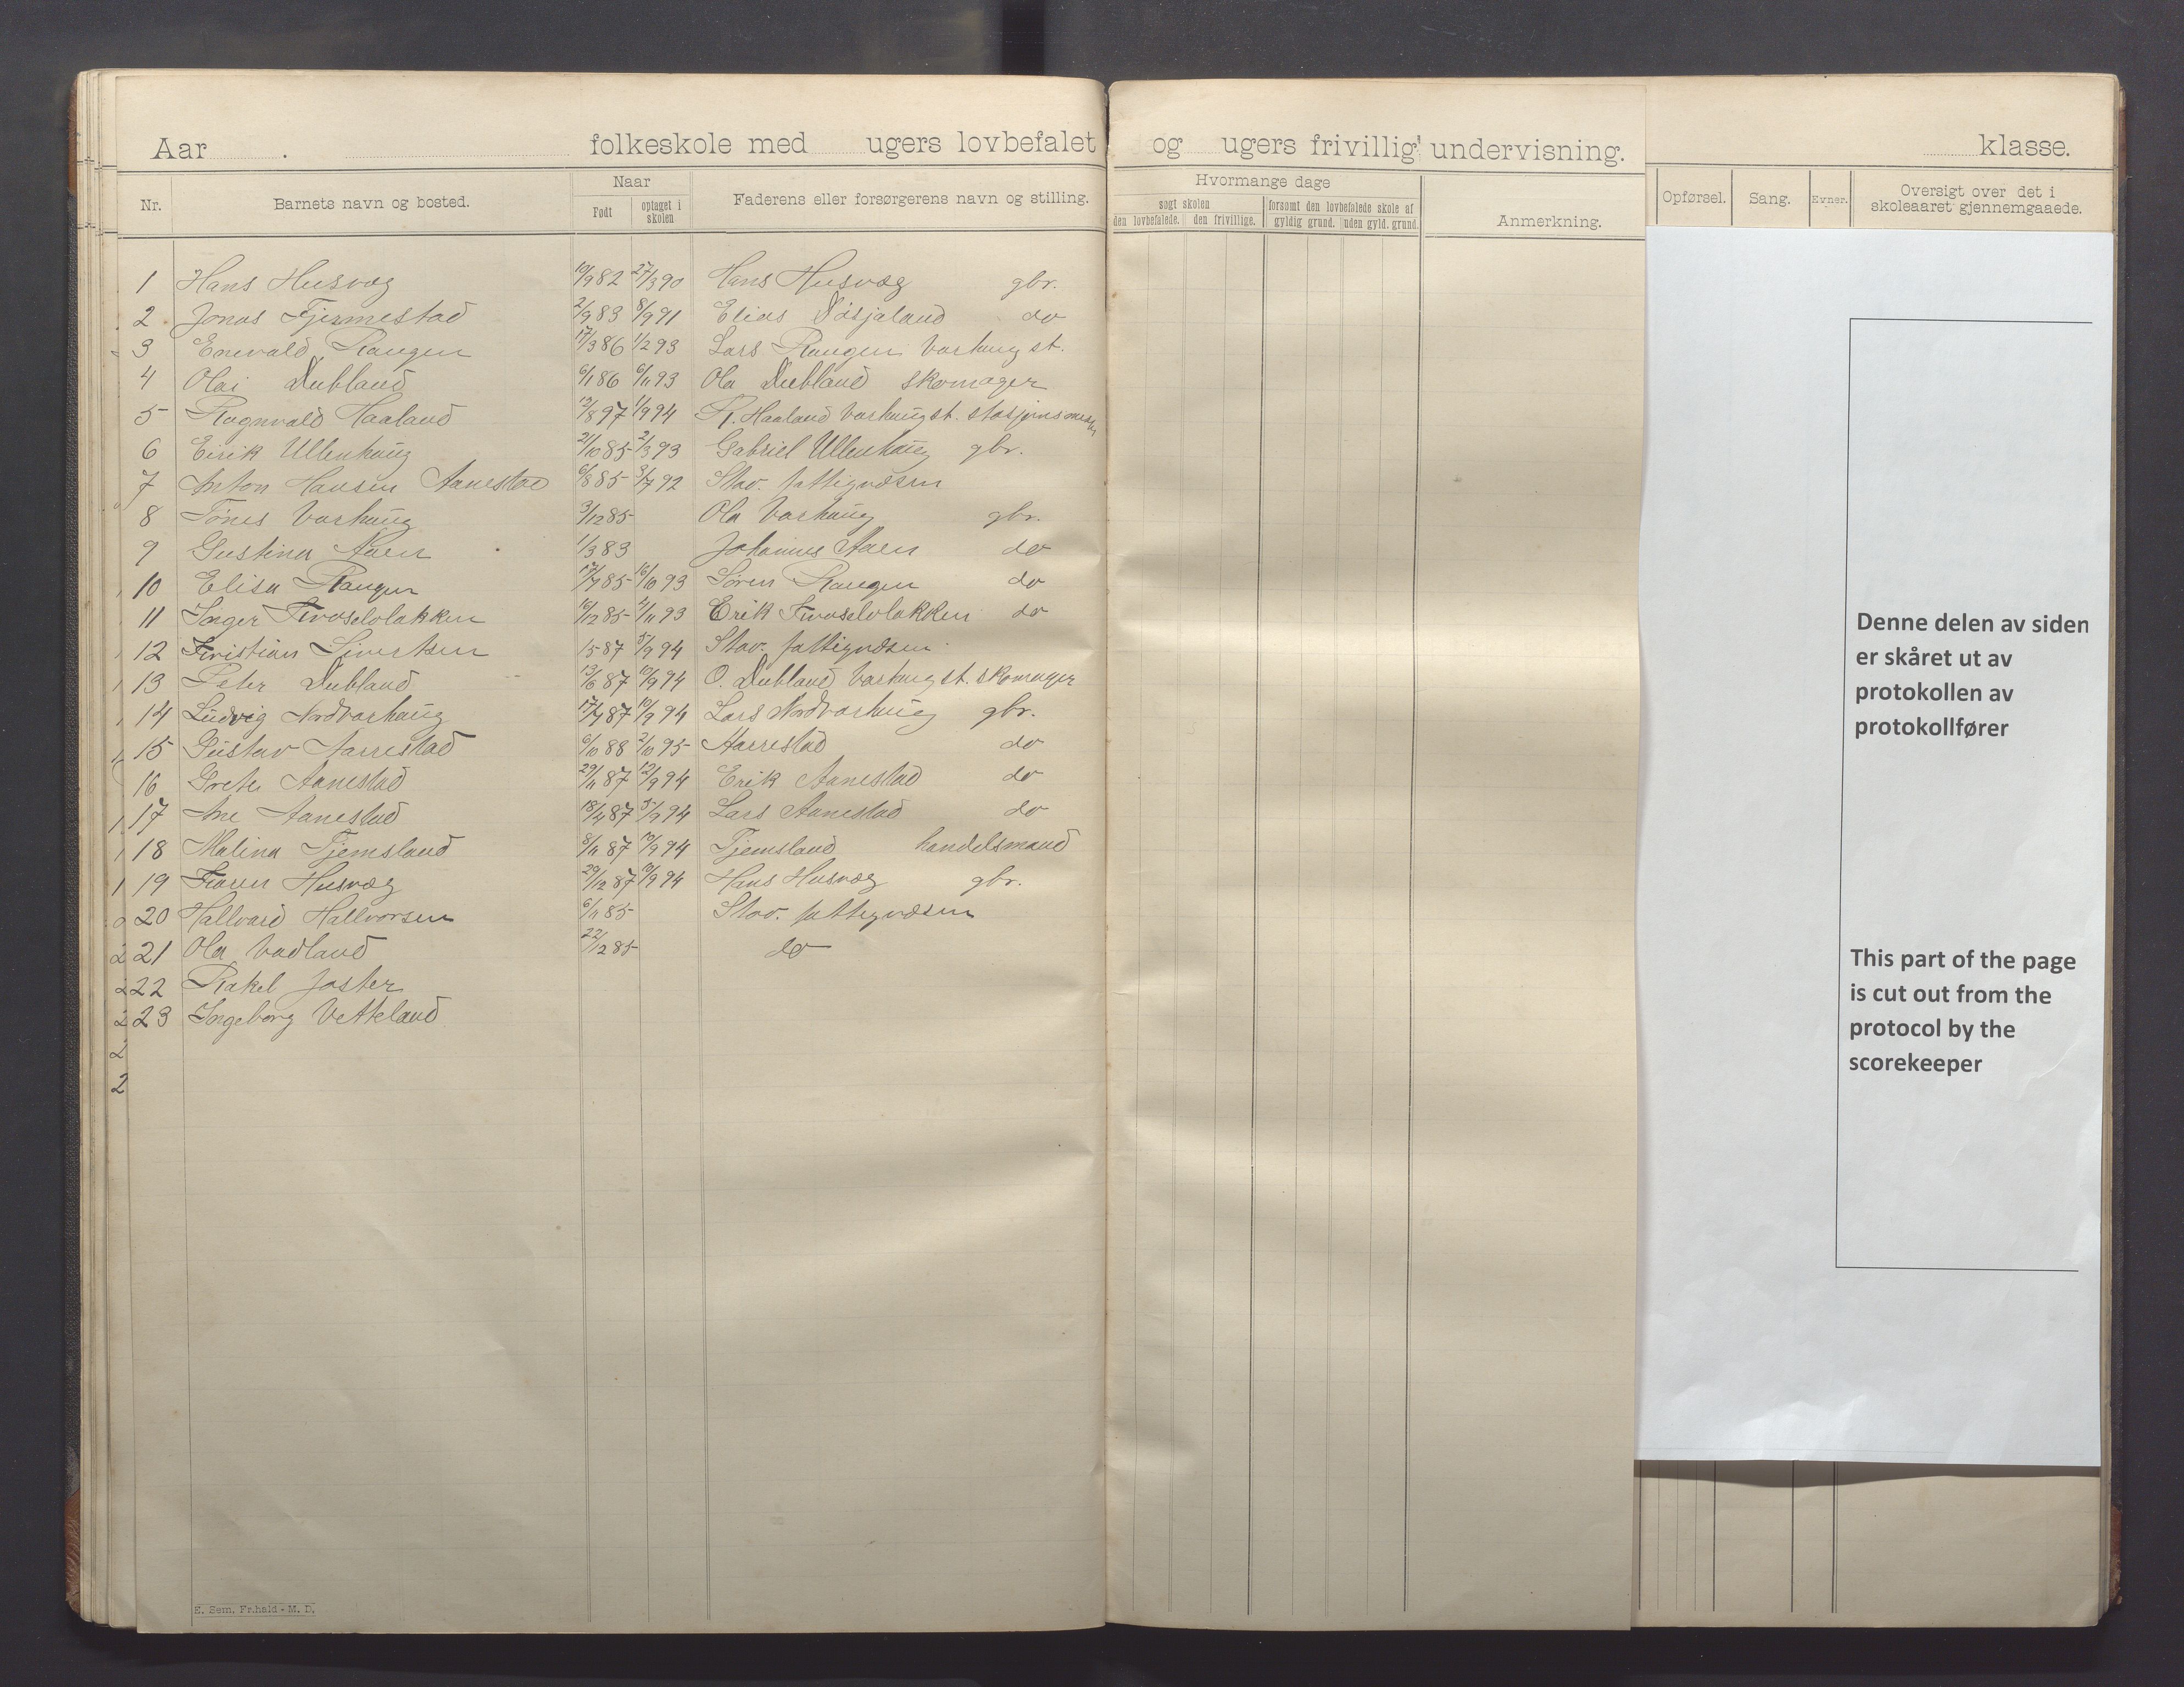 Aar . folkeskole med ugers lovbefalet og ugers frivillig undervisning. klasse.
Nr. Barnets navn og bosted. Naar Født optaget i skolen Faderens eller forsørgerens navn og stilling. Hvormange dage søgt skolen den lovbefalede. den frivillige. forsømt den lovbefalede skole af gyldig grund. uden gyld. grund. Anmerkning. Opførsel. Sang. Evner. Oversigt over det i skoleaaret gjennemgaaede.
1 Hans Husvæg 19/9 82 27/3 90 Hans Husvæg gbr.
2 Jonas Tjermestad 2/9 83 8/9 91 Elias do
3 Enevald Rangen 17/3 86 1/2 93 Lars Rangen Varhaug st.
4 Olai Dubland 6/1 86 6/11 93 Ola Dubland skomager
5 Ragnvald Haaland 12/8 97 1/9 94 R. Haaland Varhaug st. stasjons
6 Eirik Ullenhaug 21/10 85 2/3 93 Gabriel Ullenhaug gbr.
7 Anton Hansen Aanestad 6/8 85 3/7 92 Stav. fattigvæsen
8 Tønes Varhaug 3/12 85 Ola Varhaug gbr.
9 Gustina Aaen 1/3 83 Johannes Aaen do
10 Elisa Rangen 17/7 85 16/10 93 Søren Rangen do
11 Inger 16/12 85 2/11 93 Erik do
12 Kristian Sivertsen 15 87 5/9 94 Stav. fattigvæsen
13 Peter Dubland 13/6 87 10/9 94 O. Dubland Varhaug st. skomager
14 Ludvig Nordvarhaug 17/7 87 10/9 94 Lars Nordvarhaug gbr.
15 Gustav Aarrestad 6/10 88 2/10 95 Aarrestad do
16 Grete Aanestad 29/11 87 12/9 94 Erik Aanestad do
17 Ane Aanestad 18/4 87 5/9 94 Lars Aanestad do
18 Malina Tjemsland 8/11 87 10/9 94 Tjemsland handelsmand
19 Karen Husvæg 29/12 87 10/9 94 Hans Husvæg gbr.
20 Hallvard Hallvorsen 6/11 85 Stav. fattigvæsen
21 Ola Vadland 22/12 85 do
22 Rakel Joster
23 Ingeborg Vetteland
2
2
E. Sem, Fr.hald - M. D.
Denne delen av siden
er skåret ut av
protokollen av
protokollfører
This part of the page
is cut out from the
protocol by the
scorekeeper